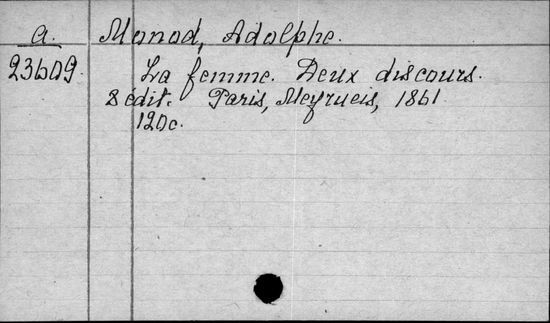 a. Monod, Adolphe.
23609. La femme. Deux discours.
8 édit. Paris, Meyrueis, 1861
12Oc.